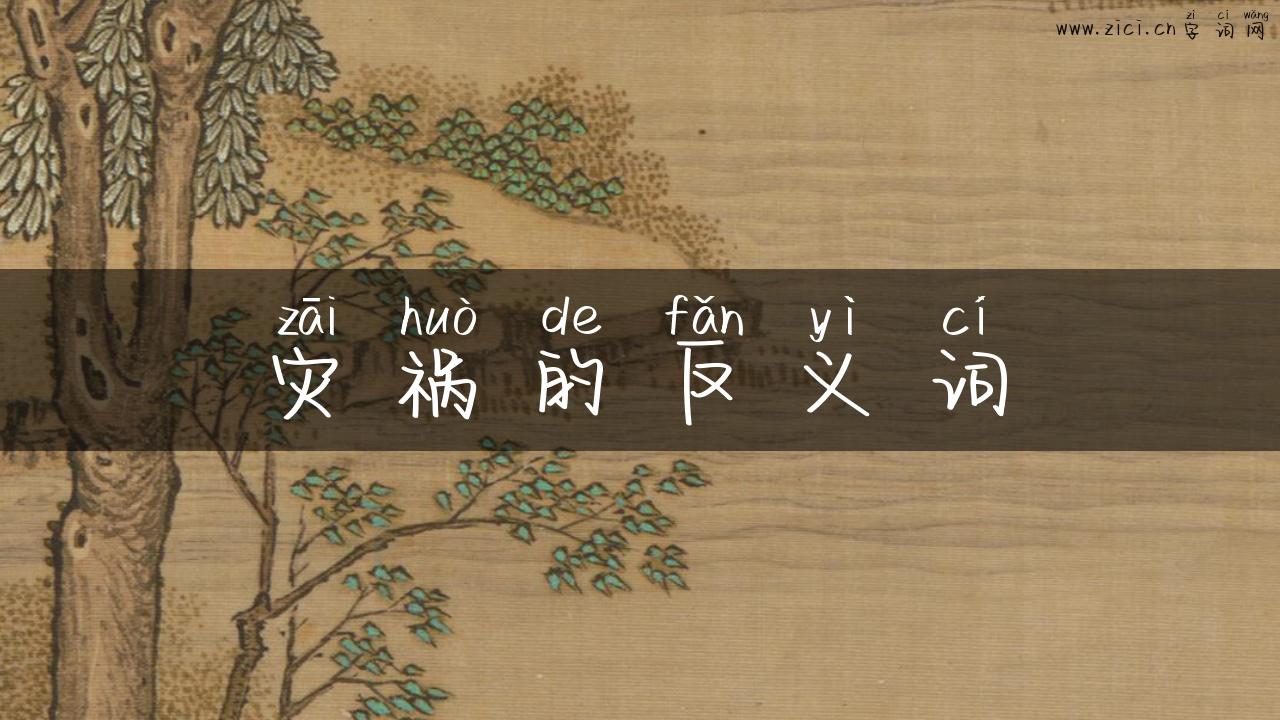 zì cí wǎng
www.zici.cn 字词网
zāi huò de fǎn yì cí
灾祸的反义词